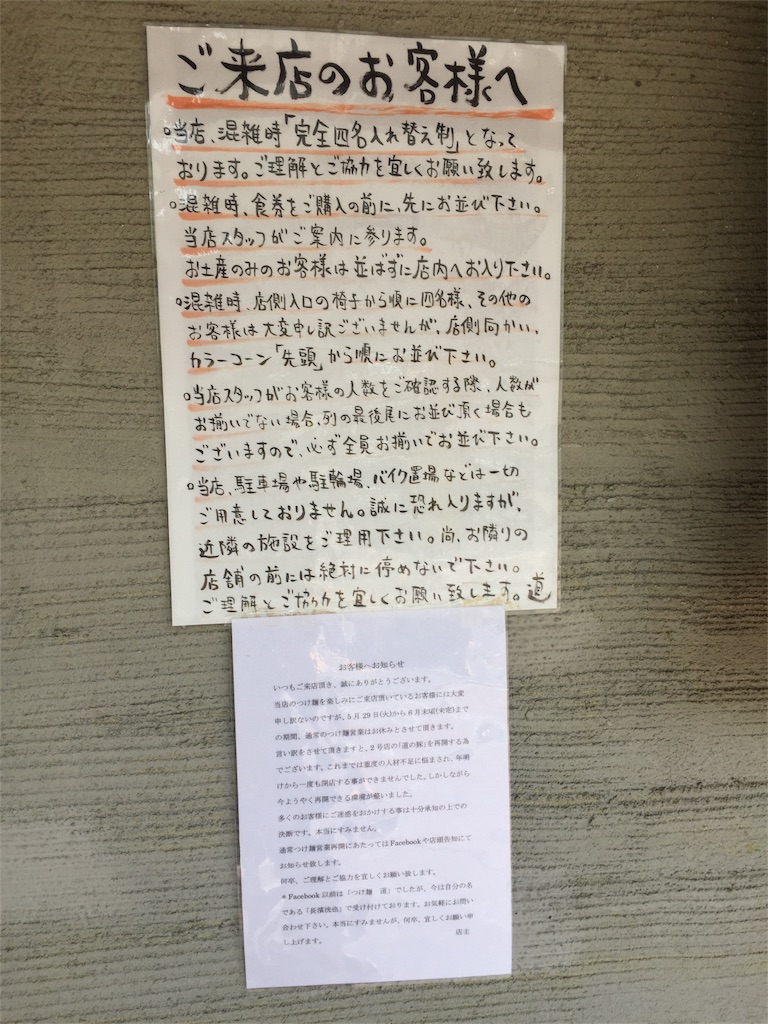 ご来店のお客様へ
◦当店、混雑時「完全四名入れ替え制」となって
おります。ご理解とご協力を宜しくお願い致します。
◦混雑時、食券をご購入の前に、先にお並び下さい。
当店スタッフがご案内に参ります。
お土産のみのお客様は並ばずに店内へお入り下さい。
◦混雑時、店側入口の椅子から順に四名様、その他の
お客様は大変申し訳ございませんが、店側向かい、
カラーコーン「先頭」から順にお並び下さい。
◦当店スタッフがお客様の人数をご確認する際、人数が
お揃いでない場合、列の最後尾にお並び頂く場合も
ございますので、必ず全員お揃いでお並び下さい。
◦当店、駐車場や駐輪場、バイク置場などは一切
ご用意しておりません。誠に恐れ入りますが、
近隣の施設をご理用下さい。尚、お隣りの
店舗の前には絶対に停めないで下さい。
ご理解とご協力を宜しくお願い致します。道
お客様へお知らせ
いつもご来店頂き、誠にありがとうございます。
当店のつけ麺を楽しみにご来店頂いているお客様には大変
申し訳ないのですが、5月29日(火)から6月末頃(未定)まで
の期間、通常のつけ麺営業はお休みとさせて頂きます。
言い訳をさせて頂きますと、2号店の「道の豚」を再開する為
でございます。これまでは重度の人材不足に悩まされ、年明
けから一度も開店する事ができませんでした。しかしながら
今ようやく再開できる環境が整いました。
多くのお客様にご迷惑をおかけする事は十分承知の上での
決断です。本当にすみません。
通常つけ麺営業再開にあたってはFacebookや店頭告知にて
お知らせ致します。
何卒、ご理解とご協力を宜しくお願い致します。
＊Facebook以前は「つけ麺　道」でしたが、今は自分の名
である「長濱洸也」で受け付けております。お気軽にお問い
合わせ下さい。本当にすみませんが、何卒、宜しくお願い申
し上げます。　店主